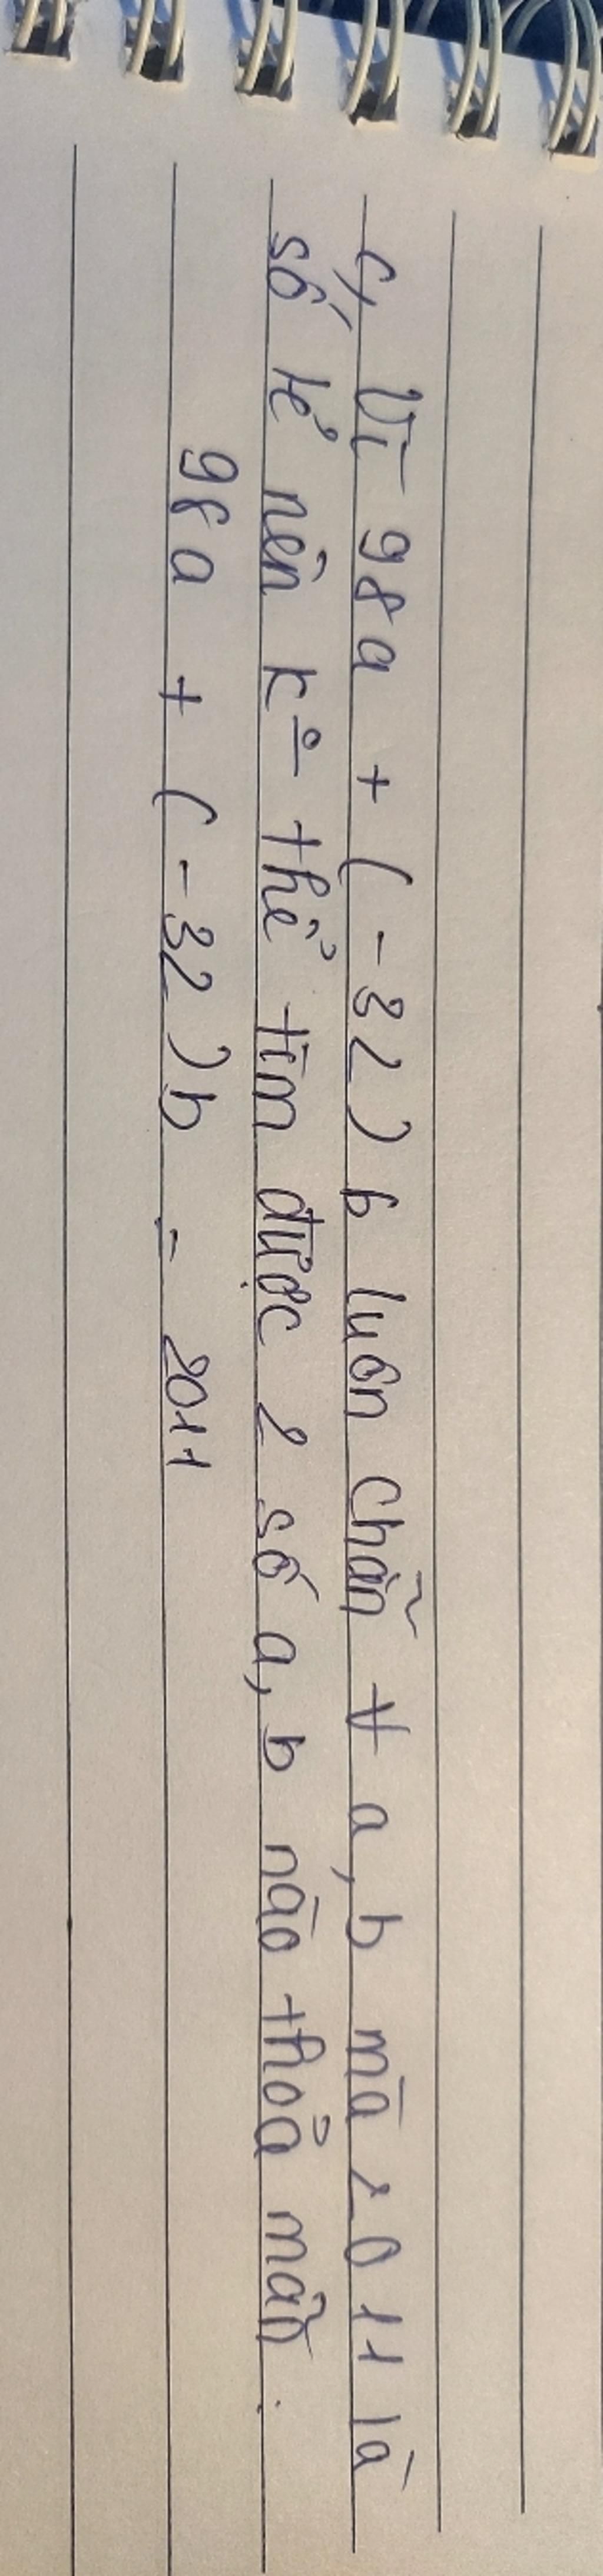 c, Vì 98a + (-32) b luôn chẵn ∀ a, b mà 2011 là
số lẻ nên k° thể tìm được 2 số a, b nào thoả mãn :
98a + (-32) b = 2011